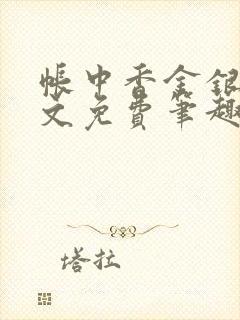 帐中香金银
文免费笔趣
塔拉